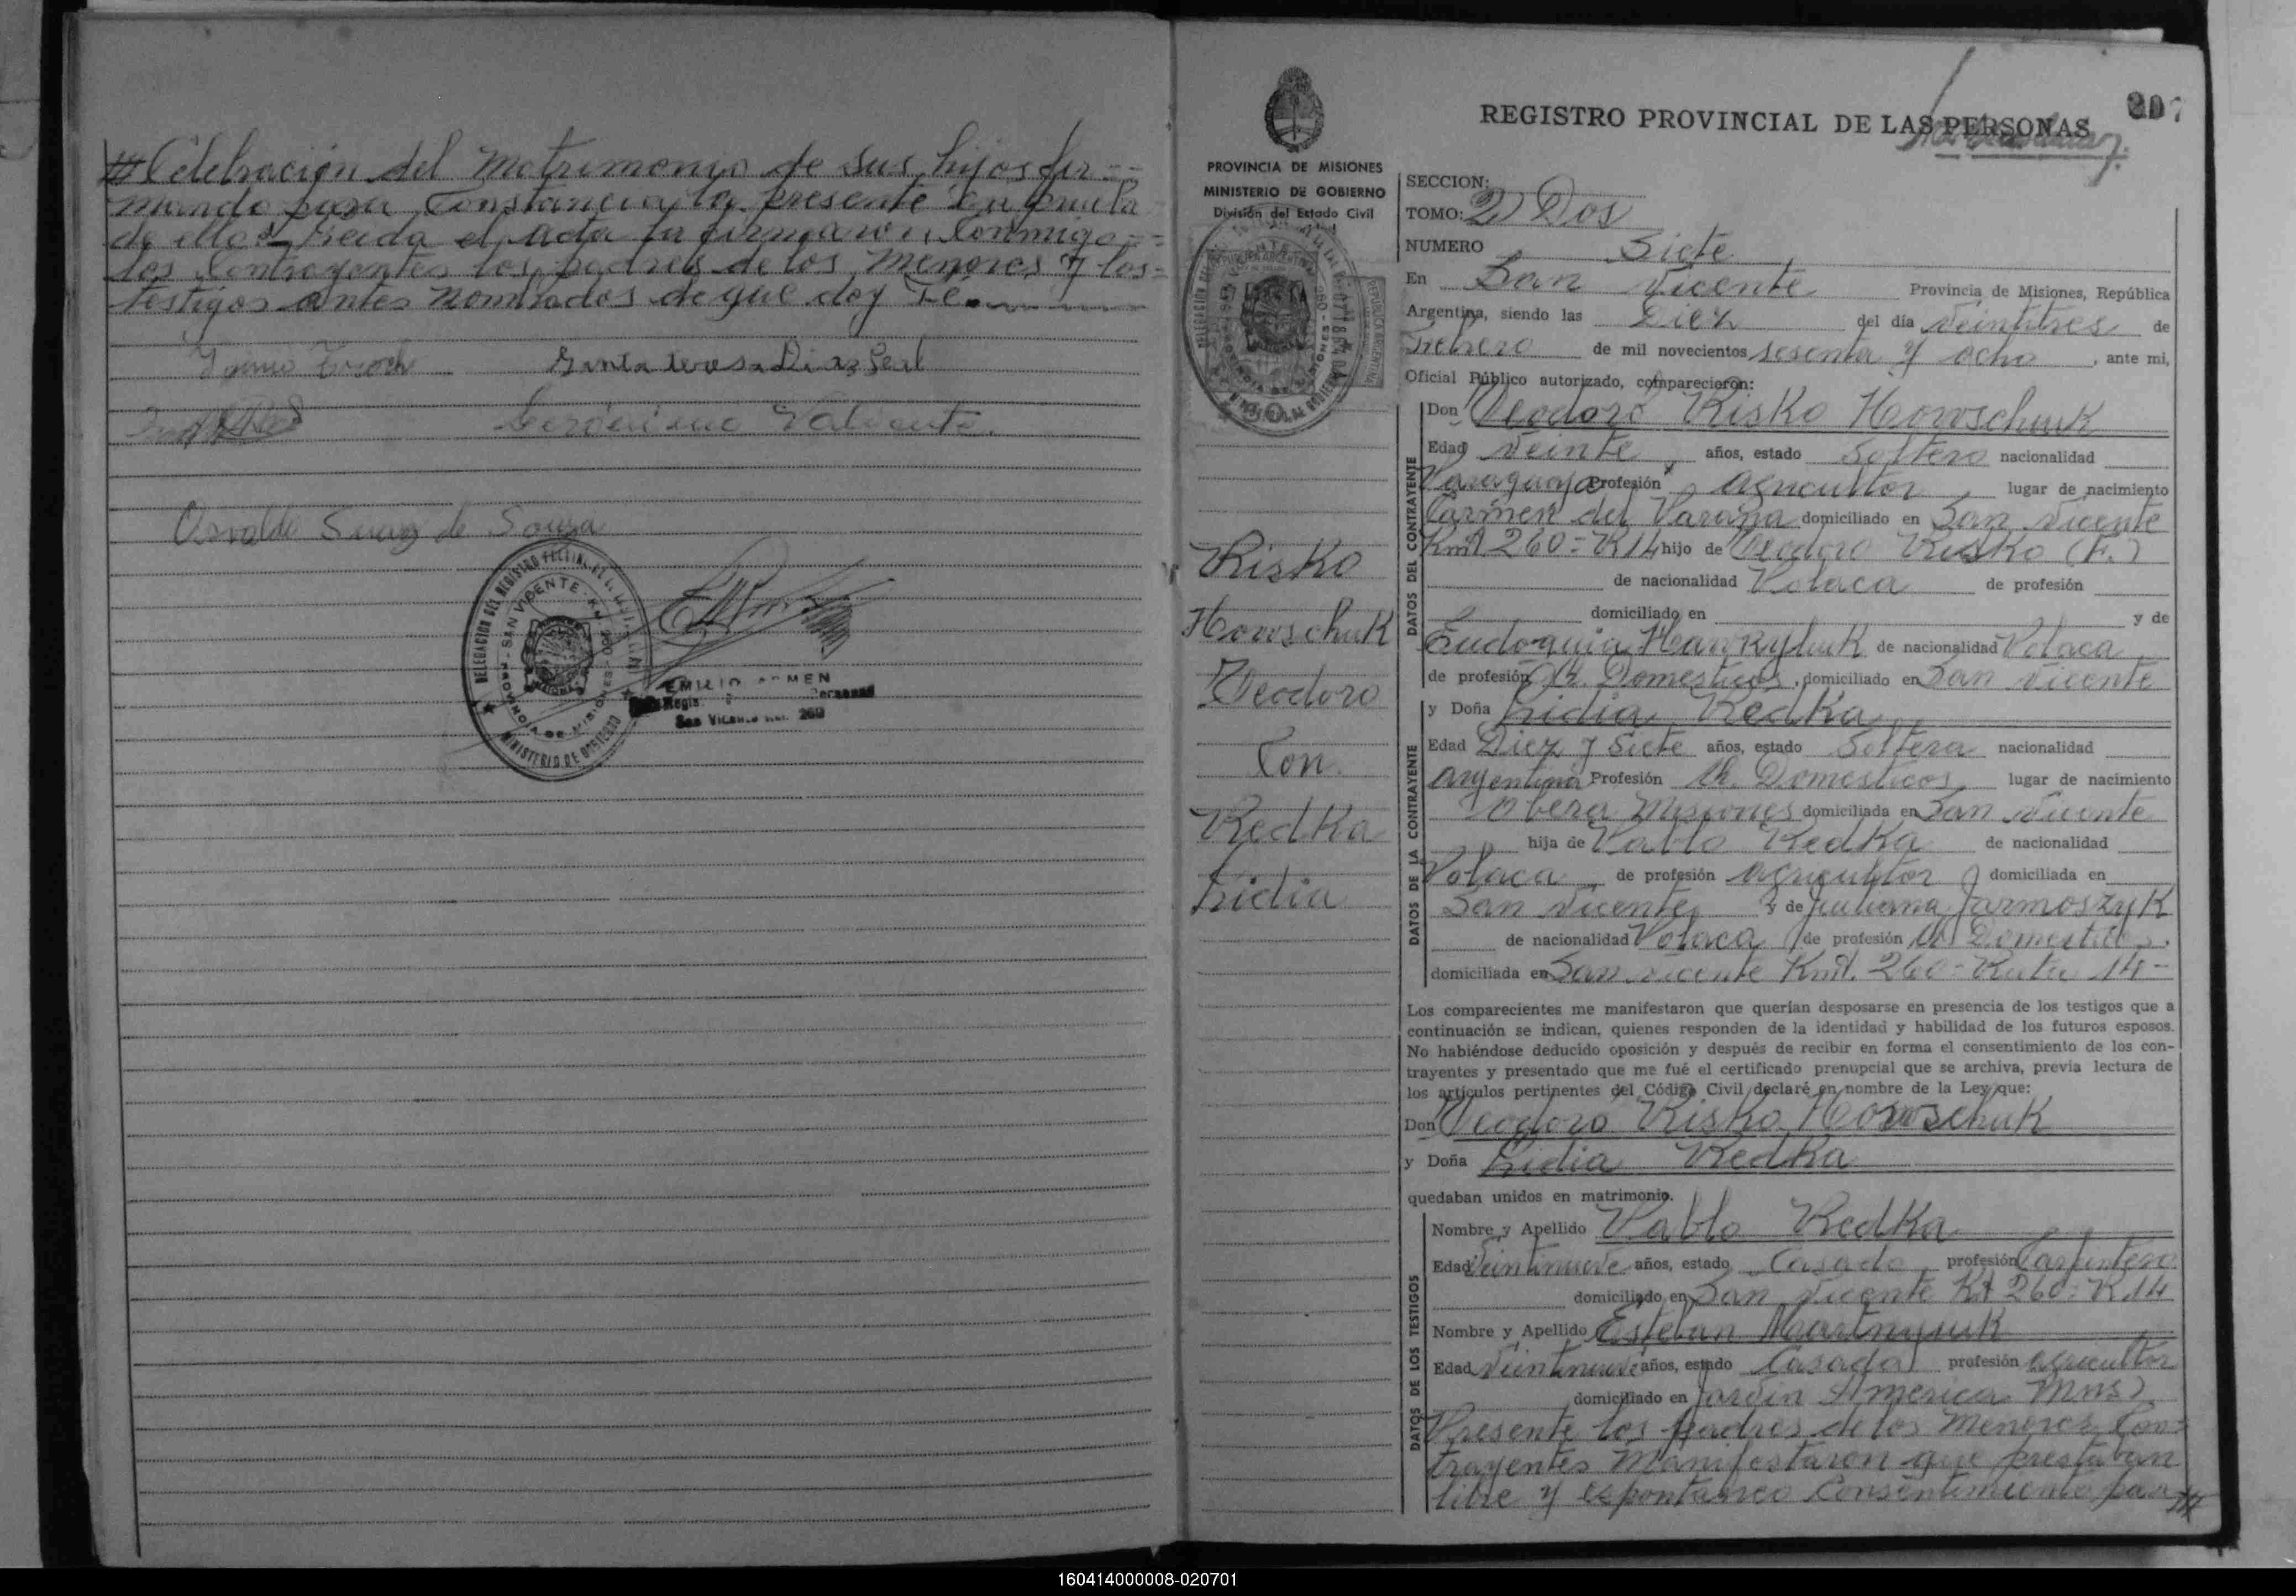 Celebración del Matrimonio de sus hijos fir=
mando para Constancia la presente en prueba
de ello = Leida el acta la firmaron Conmigo
los Contrayentes los padres de los Menores y los=
testigos antes nombrados de que doy Fé.
Santa teresa Diaz Leal
Gerónimo Valiente.
Osvaldo Suarez de Souza
SAN VICENTE
PROVINCIA DE MISIONES
MINISTERIO DE GOBIERNO
EMILIO
San Vicente Km. 260
PROVINCIA DE MISIONES
MINISTERIO DE GOBIERNO
División del Estado Civil
Risko
Howschuk
Teodoro
Con.
Redka
Lidia
207
REGISTRO PROVINCIAL DE LAS PERSONAS
SECCION:
TOMO: 2) Dos
NUMERO Siete
En San Vicente Provincia de Misiones, República
Argentina, siendo las Diez del día Veintitres de
Febrero de mil novecientos sesenta y ocho, ante mi,
Oficial Público autorizado, comparecieron:
DATOS DEL CONTRAYENTE
Don Teodoro Risko Howschuk
Edad Veinte años, estado Soltero nacionalidad
Paraguaya Profesión agricultor lugar de nacimiento
Carmen del Parana domiciliado en San Vicente
Km 260 = R 14 hijo de Teodoro Risko (F.)
de nacionalidad Polaca de profesión
domiciliado en y de
Eudoquia de nacionalidad Polaca
de profesión Q. Domesticos, domiciliado en San Vicente
DATOS DE LA CONTRAYENTE
y Doña Lidia Redka
Edad Diez y Siete años, estado Soltera nacionalidad
argentina Profesión Q. Domesticos lugar de nacimiento
Obera Misiones domiciliada en San Vicente
hija de Pablo Redka de nacionalidad
Polaca de profesión agricultor domiciliada en
San Vicente y de Juliana Jarmoszuk
de nacionalidad Polaca de profesión Q. Domesticos.
domiciliada en San Vicente Km. 260 - Ruta 14 -
Los comparecientes me manifestaron que querían desposarse en presencia de los testigos que a
continuación se indican, quienes responden de la identidad y habilidad de los futuros esposos.
No habiéndose deducido oposición y después de recibir en forma el consentimiento de los con-
trayentes y presentado que me fué el certificado prenupcial que se archiva, previa lectura de
los artículos pertinentes del Código Civil declaré en nombre de la Ley que:
Don Teodoro Risko Howschuk
y Doña Lidia Redka
quedaban unidos en matrimonio.
DATOS DE LOS TESTIGOS
Nombre y Apellido Pablo Redka
Edad Veintinueve años, estado Casado, profesión Carpintero
domiciliado en San Vicente K 260: R. 14
Nombre y Apellido Esteban Martnyuk
Edad Veintinueve años, estado Casado profesión agricultor
domiciliado en Jardin America Mns)
Presente los padres de los menores Con=
trayentes Manifestaron que prestaban
libre y espontaneo Consentimiento para
160414000008-020701